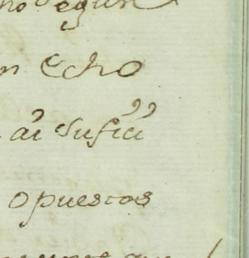 no segun
n Echo
ai sufici
opuestos